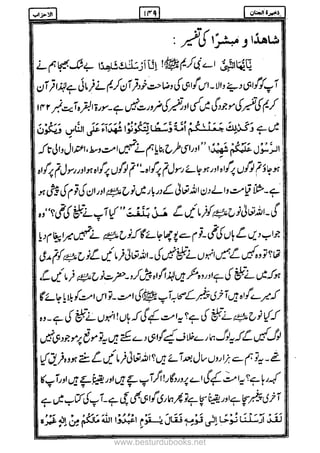 ذخیرۃ الجنان ۱۳۹ الاحزاب
شاھدًا و مبشرًا کی تفسیر :
یٰٓاَیُّھَا النَّبِیُّ اے نبی کریم ﷺ! اِنَّآ اَرْسَلْنٰکَ شَاھِدًا بے شک بھیجا ہم نے
آپ کو گواہی دینے والا۔ اس گواہی کی وضاحت خود قرآن کریم نے فرمائی ہے لہٰذا قرآن
کریم کی تفسیر کی موجودگی میں کسی اور تفسیر کی ضرورت نہیں ہے۔ سورۃ البقرہ آیت نمبر ۱۴۳
میں ہے وَکَذٰلِکَ جَعَلْنٰکُمْ اُمَّةً وَّسَطًا لِّتَکُوْنُوْا شُھَدَآءَ عَلَی النَّاسِ وَیَکُوْنَ
الرَّسُوْلُ عَلَیْکُمْ شَھِیْدًا ”اور اسی طرح بنایا ہم نے تمھیں امت وسط، اعتدال والی تا کہ
ہو جاؤ تم لوگوں پر گواہ اور ہو جائے رسول تم پر گواہ۔“ تم لوگوں پر گواہ ہو اور رسول تم پر گواہ
ہے۔ مثلاً قیامت والے دن اللہ تعالیٰ کے دربار میں نوح علیہ السلام اور ان کی قوم کی پیشی ہو
گی۔ اللہ تعالیٰ نوح علیہ السلام کو فرمائیں گے ھَلْ بَلَّغْتَ ”کیا آپ نے تبلیغ کی تھی؟“ وہ
جواب دیں گے ہاں کی تھی۔ قوم سے پوچھا جائے گا کہ نوح علیہ السلام نے تمھیں میرا پیغام دیا
تھا؟ تو وہ کہیں گے ہمیں کسی نے تبلیغ نہیں کی۔ اللہ تعالیٰ فرمائیں گے نوح علیہ السلام کو تم مدعی
ہو کہ میں نے تبلیغ کی ہے اور وہ منکر ہیں لہٰذا گواہ پیش کرو۔ حضرت نوح علیہ السلام فرمائیں گے،
کہ میرے گواہ ہیں آخری پیغمبر کے صحابہ، آپ ﷺ کی امت۔ تو اس امت کو بلایا جائے گا
کہ کیا نوح علیہ السلام نے تبلیغ کی ہے؟ یہ امت کہے گی ہاں! انہوں نے تبلیغ کی ہے۔ وہ
کہیں گے کہ یہ لوگ ہمارے خلاف کیسے گواہی دے سکتے ہیں یہ تو موقع پر موجود ہی نہیں
تھے۔ یہ تو ہم سے ہزاروں سال بعد آئے ہیں؟ اللہ تعالیٰ فرمائیں گے سنتے ہو وہ فریق کیا
کہہ رہا ہے؟ یہ امت کہے گی اے پروردگار! اگر آپ سچے ہیں اور یقیناً سچے ہیں اور آپ کا
آخری پیغمبر سچا ہے اور یقیناً سچا ہے تو پھر ہماری گواہی بھی سچی ہے۔ آپ کی کتاب میں ہے
لَقَدْ اَرْسَلْنَا نُوْحًا اِلٰی قَوْمِهٖ فَقَالَ یٰقَوْمِ اعْبُدُوا اللّٰهَ مَالَکُمْ مِّنْ اِلٰهٍ غَیْرُهٗ
www.besturdubooks.net